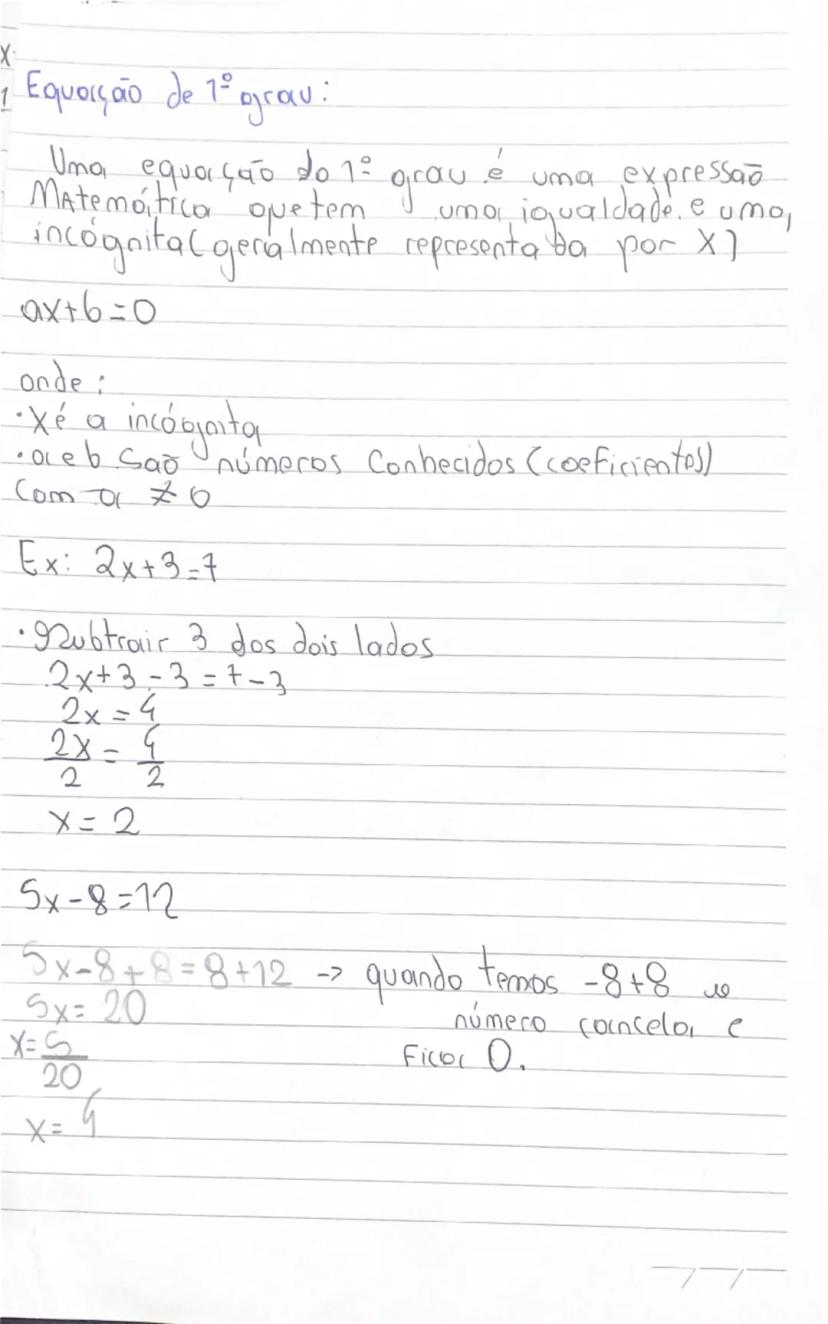 X
1
Equação de 1º grau:
Uma equação do 1º grau é uma expressão
Matemática que tem uma igualdade e uma
incógnita (geralmente representada por X)
ax+b=0
onde:
·X é a incógnita
·a e b são números conhecidos (coeficientes)
Com a ≠ 0
Ex: 2x+3=7
·Subtrair 3 dos dois lados
2x+3-3=7-3
2x=4
2x/2=4/2
x=2
5x-8=12
5x-8+8=8+12 -> quando temos -8+8 o
5x=20 número cancela e
x=5/20 fica 0.
x=4